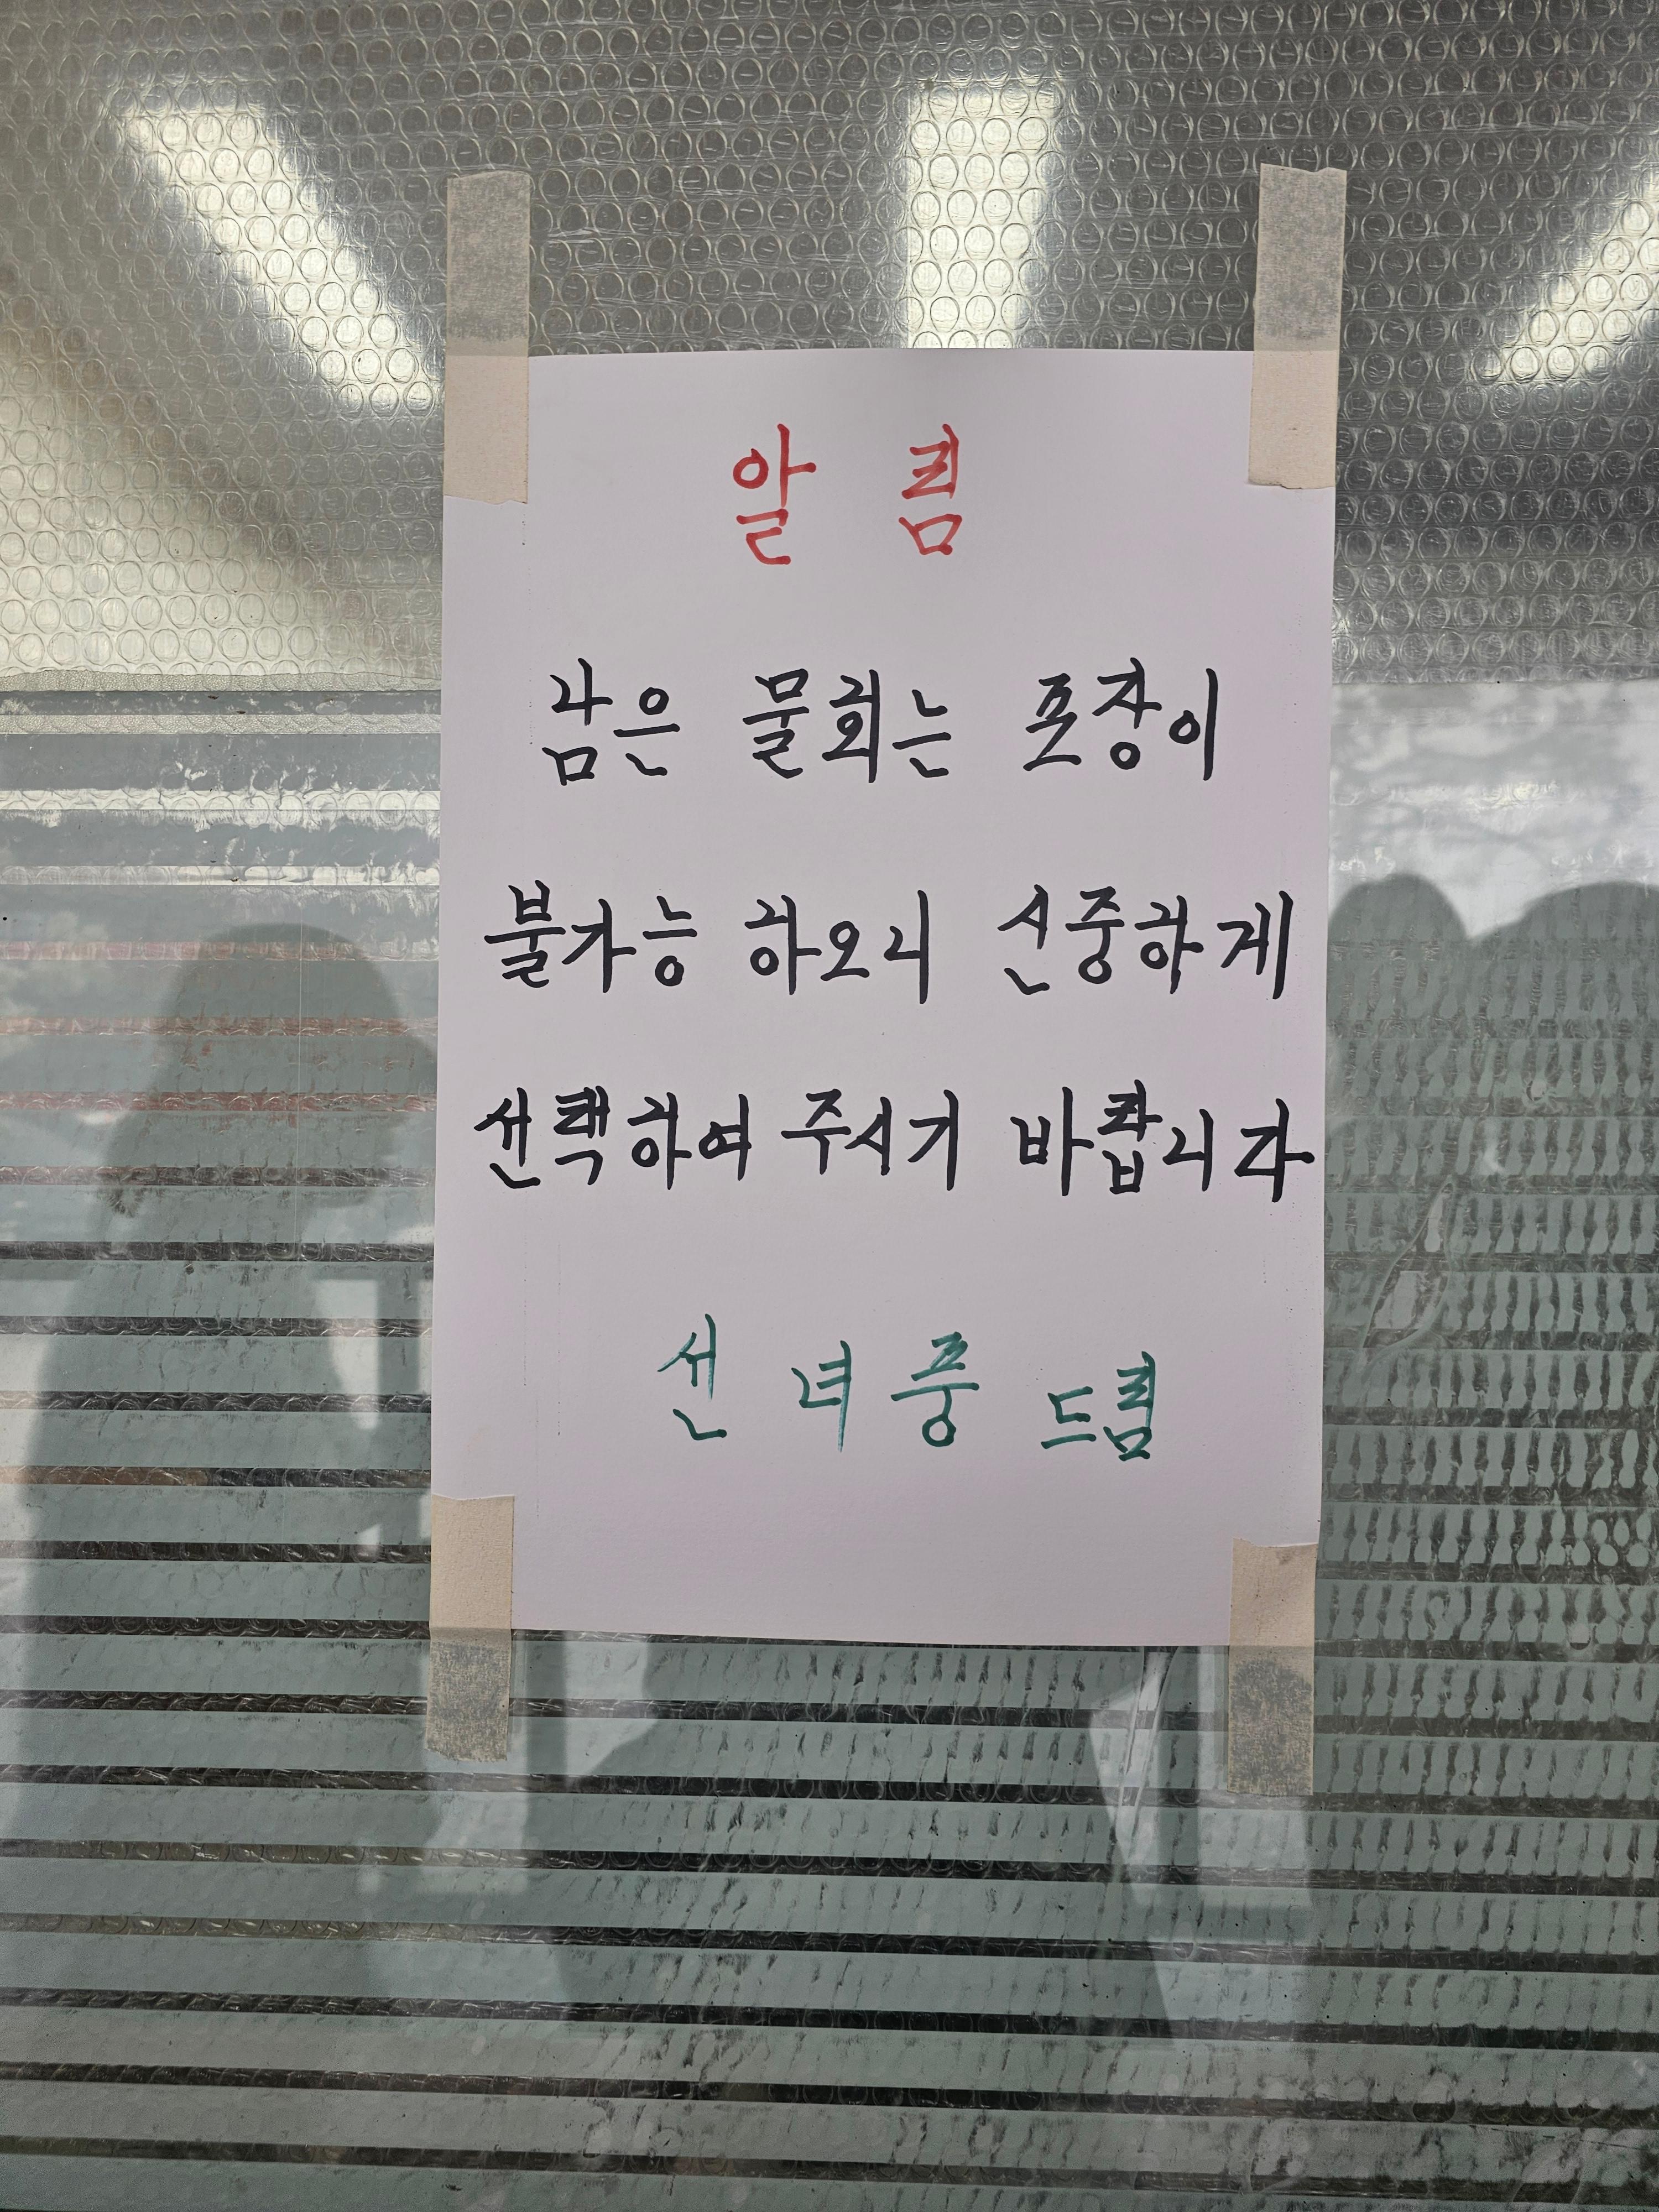 알 림
남은 물회는 포장이
불가능 하오니 신중하게
선택하여 주시기 바랍니다
선 녀 풍 드림